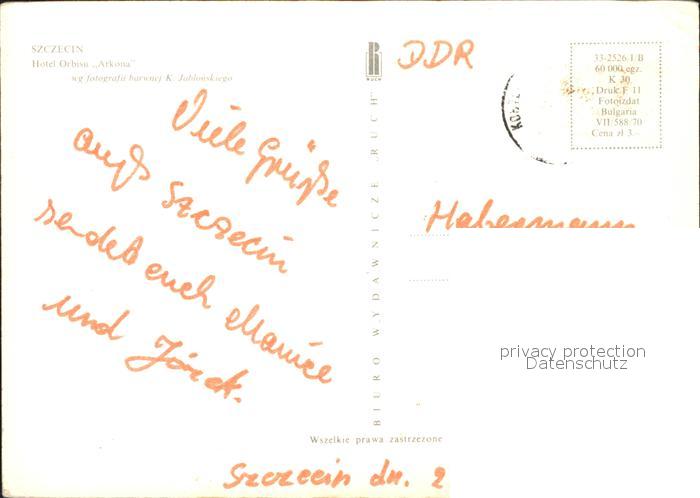 SZCZECIN
Hotel Orbisu „Arkona"
wg fotografii barwnej K. Jabłońskiego
Viele Grüße
aus Szczecin
sendet euch
und Józek.
RUCH
BIURO WYDAWNICZE „RUCH"
DDR
33-2526 I/B
60 000 egz.
K 30
Druk F 11
Fotoizdat
Bulgaria
VII/588/70
Cena zł 3.-
Habermann
privacy protection
Datenschutz
Wszelkie prawa zastrzeżone
Szczecin dn. 2